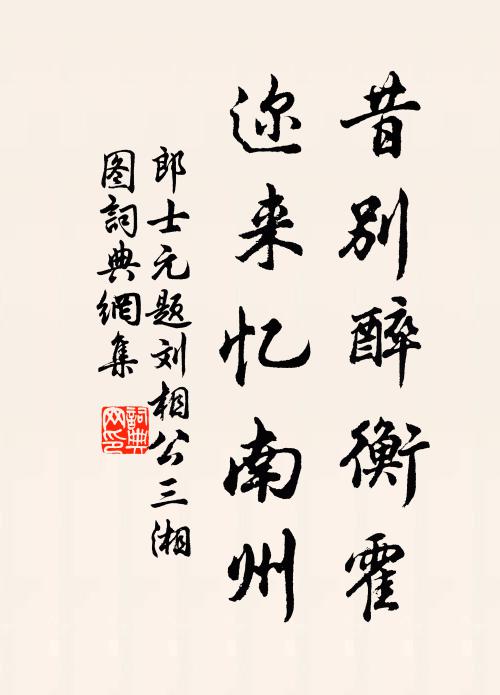 昔别醉衡霍
迩来忆南州
郎士元题刘相公三湘
图词典網集
詞典
网印